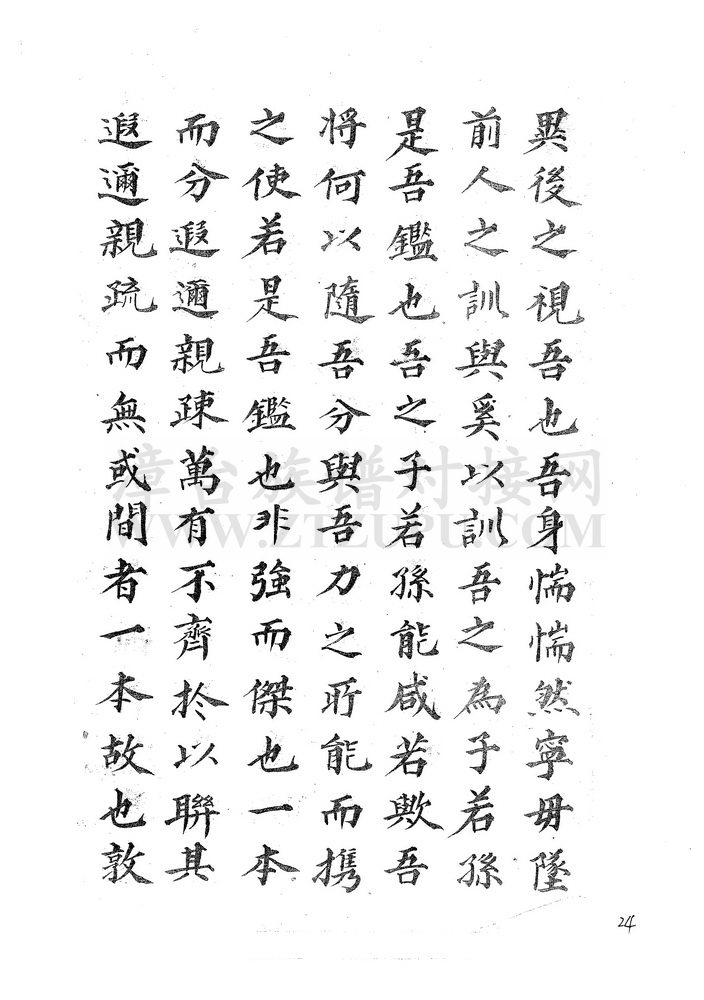 異後之視吾也吾身惴惴然寧毋墜
前人之訓與奚以訓吾之為子若孫
是吾鑑也吾之子若孫能咸若歟吾
将何以隨吾分與吾力之所能而攜
之使若是吾鑑也非強而傑也一本
而分遐邇親疎萬有不齊於以聯其
遐邇親疏而無或間者一本故也敦
漳台族谱对接网
WWW.ZTZUPU.COM
24